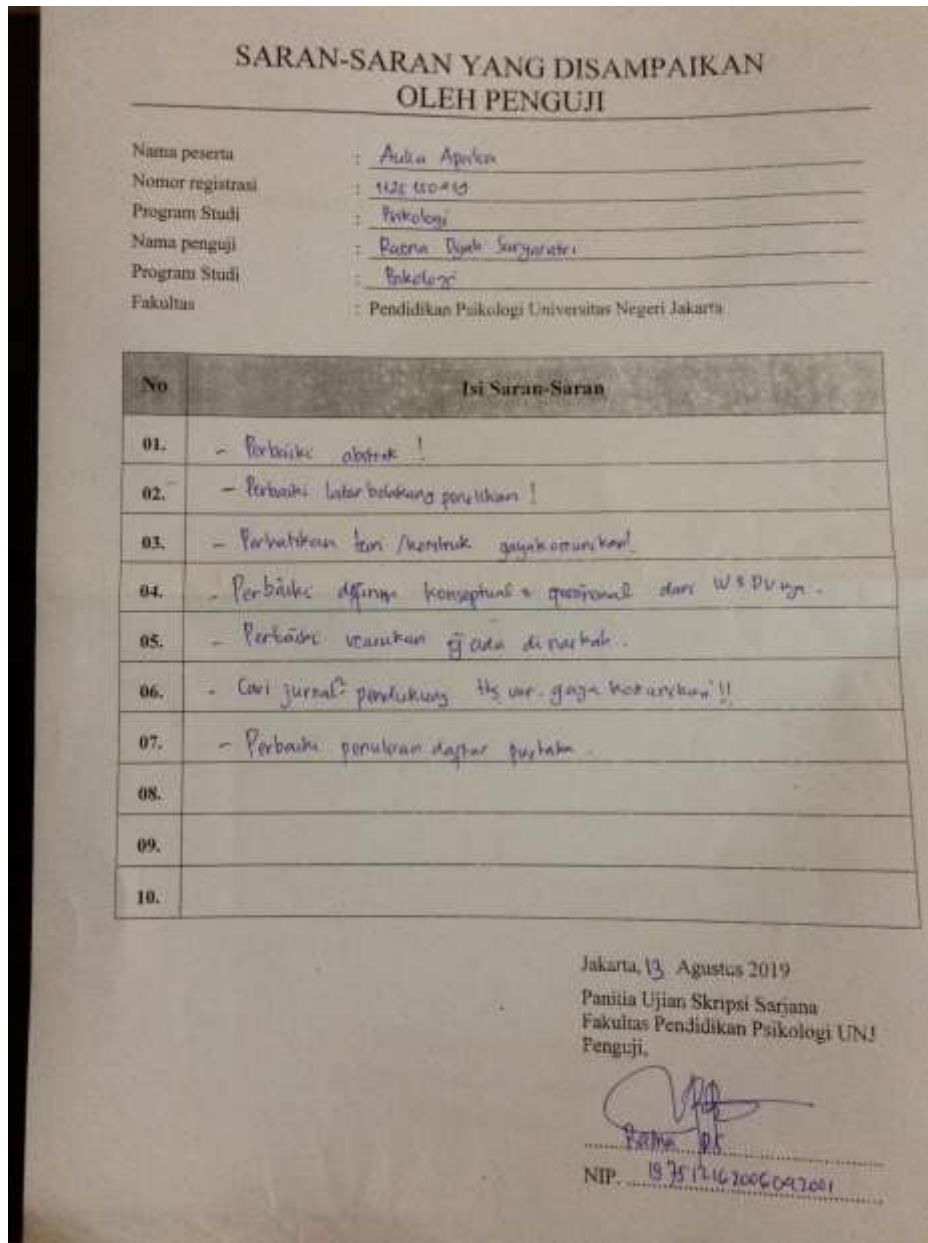 SARAN-SARAN YANG DISAMPAIKAN
OLEH PENGUJI
Nama peserta : Aulia
Nomor registrasi :
Program Studi : Psikologi
Nama penguji : Ratna Dyah Suryaratri
Program Studi : Psikologi
Fakultas : Pendidikan Psikologi Universitas Negeri Jakarta
No Isi Saran-Saran
01. - Perbaiki abstrak !
02. - Perbaiki latar belakang penelitian !
03. - Perhatikan /konstruk gaya komunikasi!
04. - Perbaiki definisi konseptual & operasional dari
05. - Perbaiki yg ada di naskah.
06. - Cari jurnal² pendukung ttg var. gaya komunikasi !!
07. - Perbaiki penulisan daftar pustaka.
08.
09.
10.
Jakarta, 13 Agustus 2019
Panitia Ujian Skripsi Sarjana
Fakultas Pendidikan Psikologi UNJ
Penguji,
Ratna DS
NIP. 197512162006042001